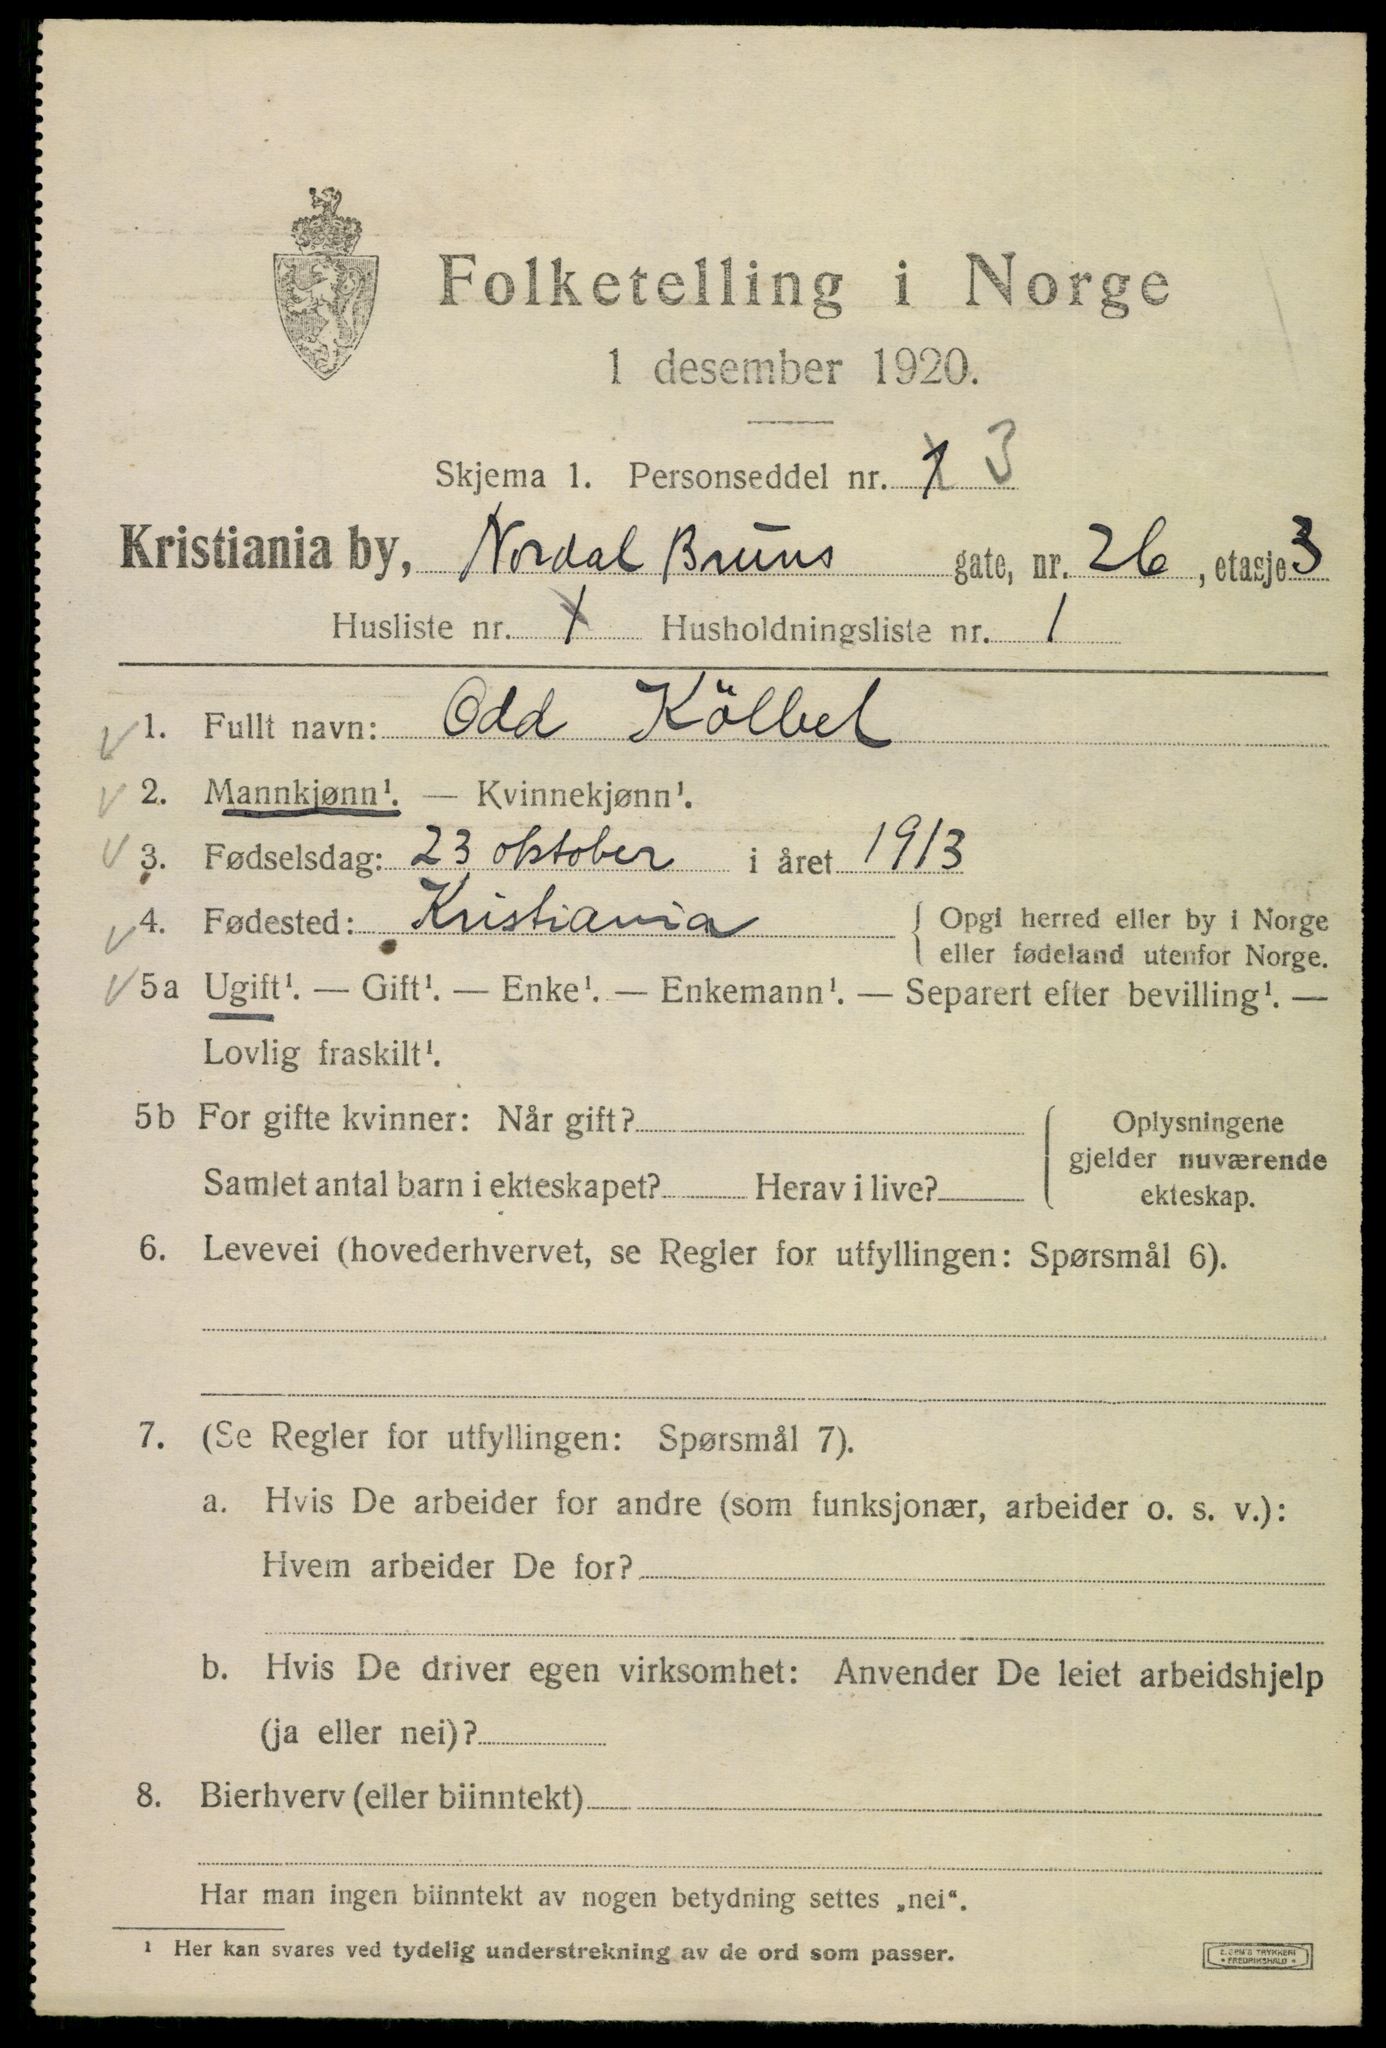 Folketelling i Norge
1 desember 1920.
Skjema 1. Personseddel nr. 1 3
Kristiania by, Nordal Bruns gate, nr. 26, etasje 3
Husliste nr. 1 Husholdningsliste nr. 1
1. Fullt navn: Odd Kölbel
2. Mannkjønn¹. — Kvinnekjønn¹.
3. Fødselsdag: 23 oktober i året 1913
4. Fødested: Kristiania { Opgi herred eller by i Norge
eller fødeland utenfor Norge.
5a Ugift¹. — Gift¹. — Enke¹. — Enkemann¹. — Separert efter bevilling¹. —
Lovlig fraskilt¹.
5b For gifte kvinner: Når gift?
Samlet antal barn i ekteskapet? Herav i live?
Oplysningene
gjelder nuværende
ekteskap.
6. Levevei (hovederhvervet, se Regler for utfyllingen: Spørsmål 6).
7. (Se Regler for utfyllingen: Spørsmål 7).
a. Hvis De arbeider for andre (som funksjonær, arbeider o. s. v.):
Hvem arbeider De for?
b. Hvis De driver egen virksomhet: Anvender De leiet arbeidshjelp
(ja eller nei)?
8. Bierhverv (eller biinntekt)
Har man ingen biinntekt av nogen betydning settes „nei“.
¹ Her kan svares ved tydelig understrekning av de ord som passer.
E. SEM'S TRYKKERI
FREDRIKSHALD